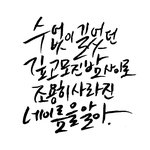 수없이 길었던
깊고 모진 밤 사이로
조용히 사라진
네 이름을 알아.